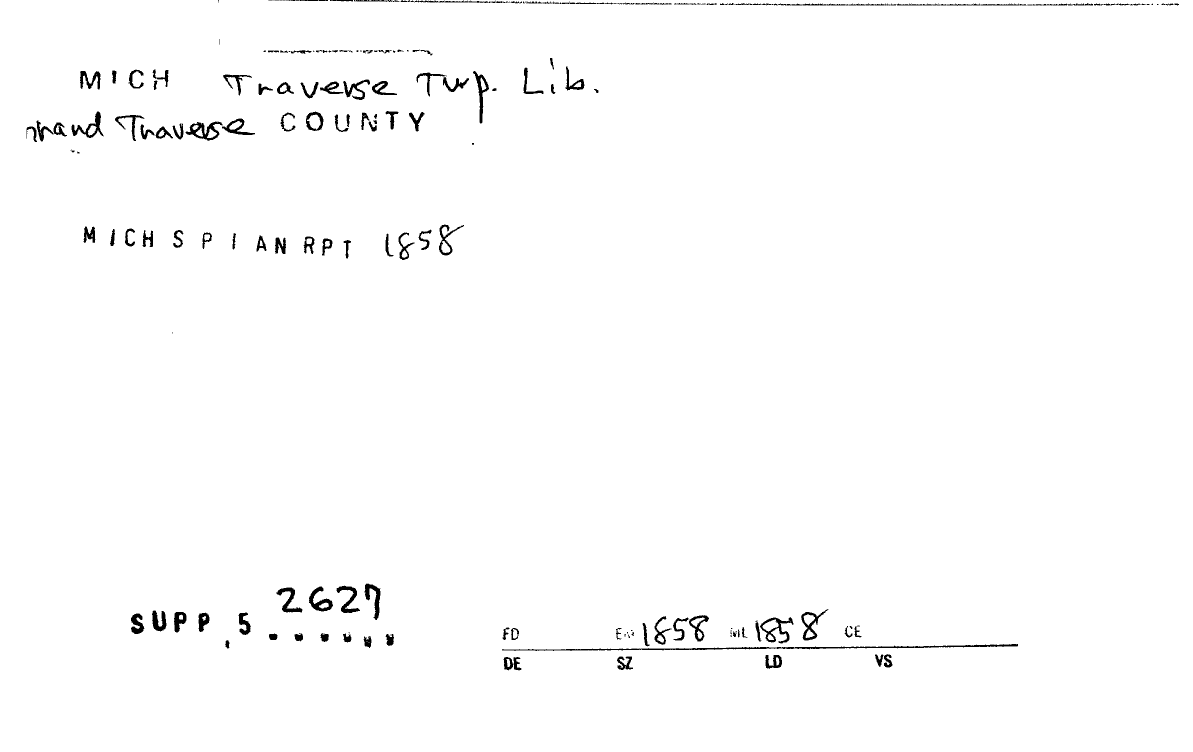 MICH Traverse Twp. Lib.
Grand Traverse COUNTY
MICHSPIANRPT 1858
2627
SUPP.5
FD 1858 1858 CE
DE SZ LD VS